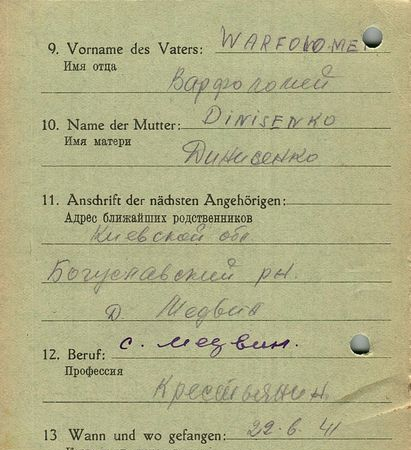 9. Vorname des Vaters: WARFOLOME
Имя отца
Варфоломей
10. Name der Mutter: DINISENKO
Имя матери
Динисенко
11. Anschrift der nächsten Angehörigen:
Адрес ближайших родственников
Киевской обл.
Богуславский рн.
д. Медвин
с. Медвин.
12. Beruf:
Профессия
Крестьянин
13 Wann und wo gefangen: 22.6.41